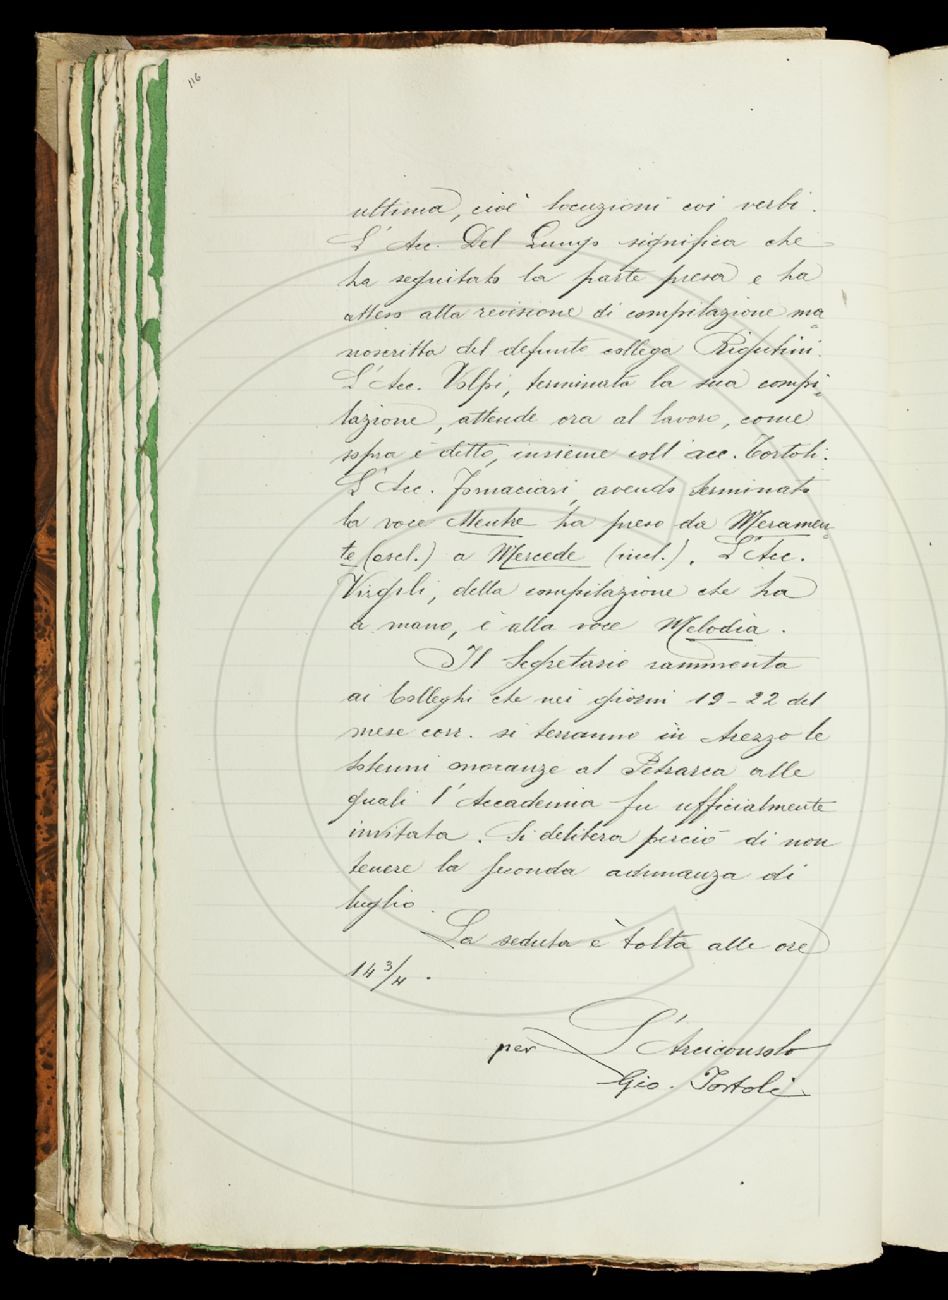 116
ultima, cioè locuzioni coi verbi.
L'Acc. Del Lungo significa che
ha seguitato la parte presa e ha
atteso alla revisione di compilazione ma=
noscritta del defunto collega Rigutini.
L'Acc. Volpi, terminata la sua compi=
lazione, attende ora al lavoro, come
sopra è detto, insieme coll'acc. Tortoli.
L'Acc. Fornaciari, avendo terminato
la voce Mentre ha preso da Meramen=
te (escl.) a Mercede (incl.). L'Acc.
Virgili, della compilazione che ha
a mano, è alla voce Melodia.
Il Segretario rammenta
ai Colleghi che nei giorni 19-22 del
mese corr. si terranno in Arezzo le
solenni onoranze al Petrarca alle
quali l'Accademia fu ufficialmente
invitata. Si delibera perciò di non
tenere la seconda adunanza di
luglio.
La seduta è tolta alle ore
14 3/4.
per L'Arciconsolo
Gio. Tortoli